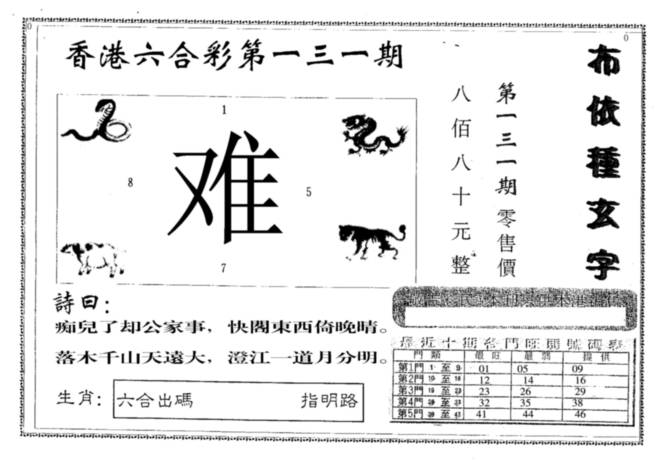 香港六合彩第一三一期
1
难
8
5
7
第一三一期零售價
八佰八十元整
布依種玄字
詩曰：
痴兒了却公家事，快閣東西倚晚晴。
落木千山天遠大，澄江一道月分明。
生肖：六合出碼 指明路
最近十期各門旺開號碼表
門類 最旺 提供
第1門 1 至 9 01 05 09
第2門 10 至 18 12 14 16
第3門 至 23 26 29
第4門 至 32 35 38
第5門 至 41 44 46
0
0